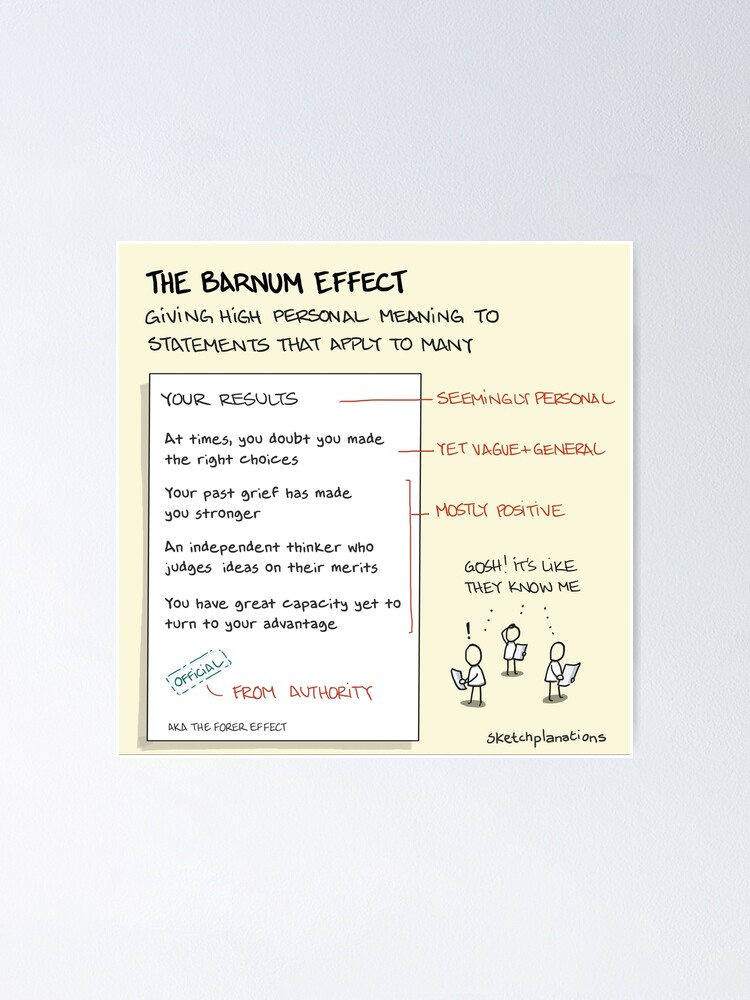 THE BARNUM EFFECT
GIVING HIGH PERSONAL MEANING TO
STATEMENTS THAT APPLY TO MANY
YOUR RESULTS
SEEMINGLY PERSONAL
At times, you doubt you made
the right choices
YET VAGUE + GENERAL
Your past grief has made
you stronger
MOSTLY POSITIVE
An independent thinker who
judges ideas on their merits
You have great capacity yet to
turn to your advantage
GOSH! IT'S LIKE
THEY KNOW ME
!
OFFICIAL
FROM AUTHORITY
AKA THE FORER EFFECT
sketchplanations